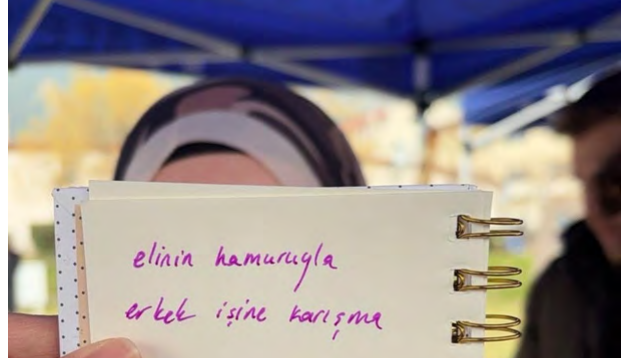 elinin hamuruyla
erkek işine karışma